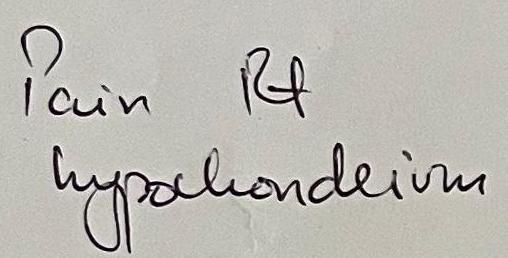 Pain Rt
hypochondrium